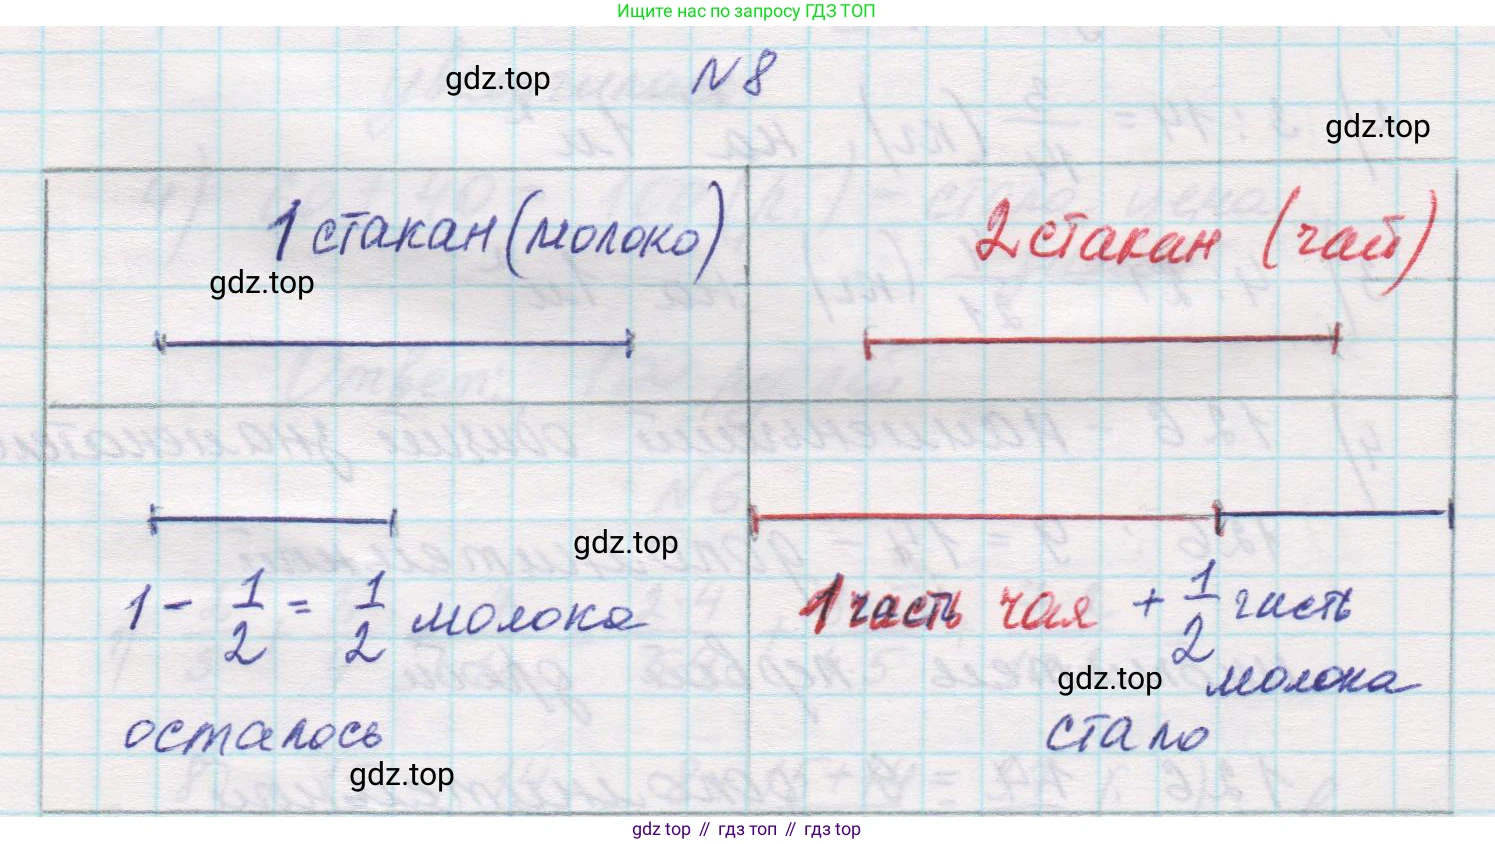 Ищите нас по запросу ГДЗ ТОП
gdz.top
N 8
gdz.top
1 стакан (молоко)
2 стакан (чай)
gdz.top
gdz.top
1 - 1/2 = 1/2 молока
осталось
1 часть чая + 1/2 часть
молока
gdz.top
стало
gdz.top
gdz top // гдз топ // гдз top